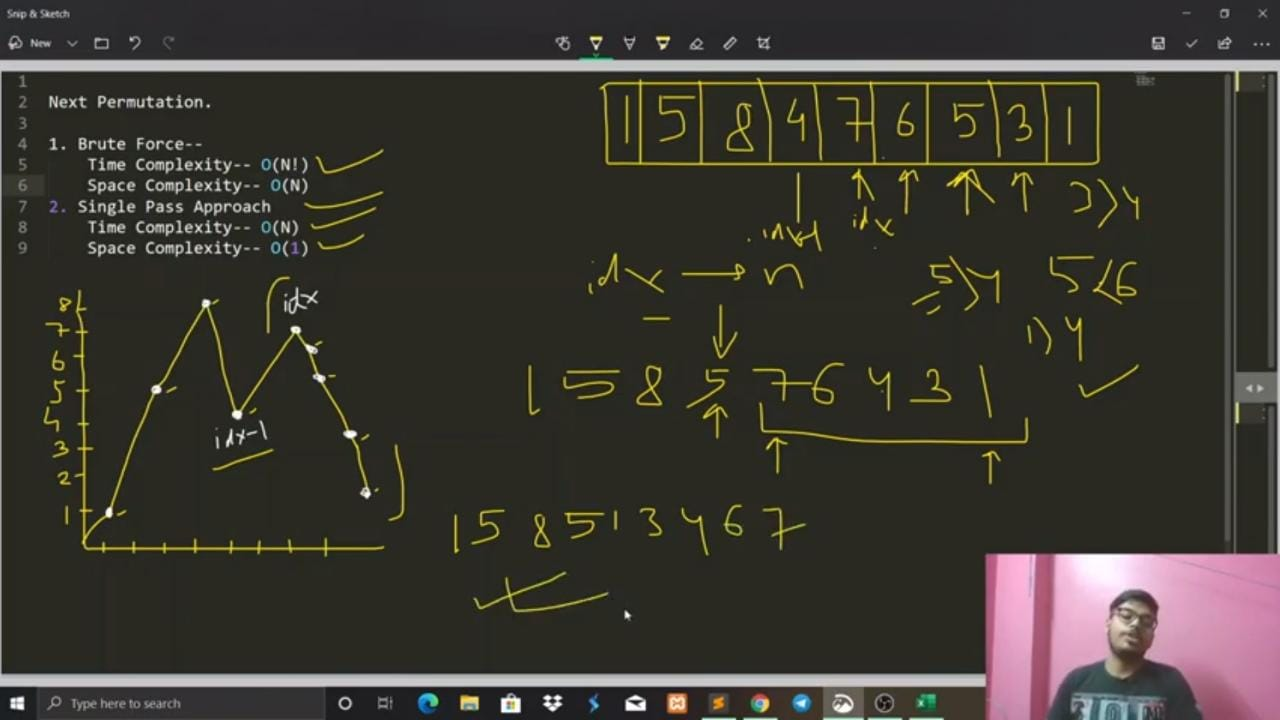 Snip & Sketch
New
1
2 Next Permutation.
3
4 1. Brute Force--
5 Time Complexity-- O(N!)
6 Space Complexity-- O(N)
7 2. Single Pass Approach
8 Time Complexity-- O(N)
9 Space Complexity-- O(1)
1 5 8 4 7 6 5 3 1
3>4
idx-1 idx
idx → n
5>4 5<6
1>4
1 5 8 5 7 6 4 3 1
8
7
6
5
4
3
2
1
idx
idx-1
1 5 8 5 1 3 4 6 7
Type here to search